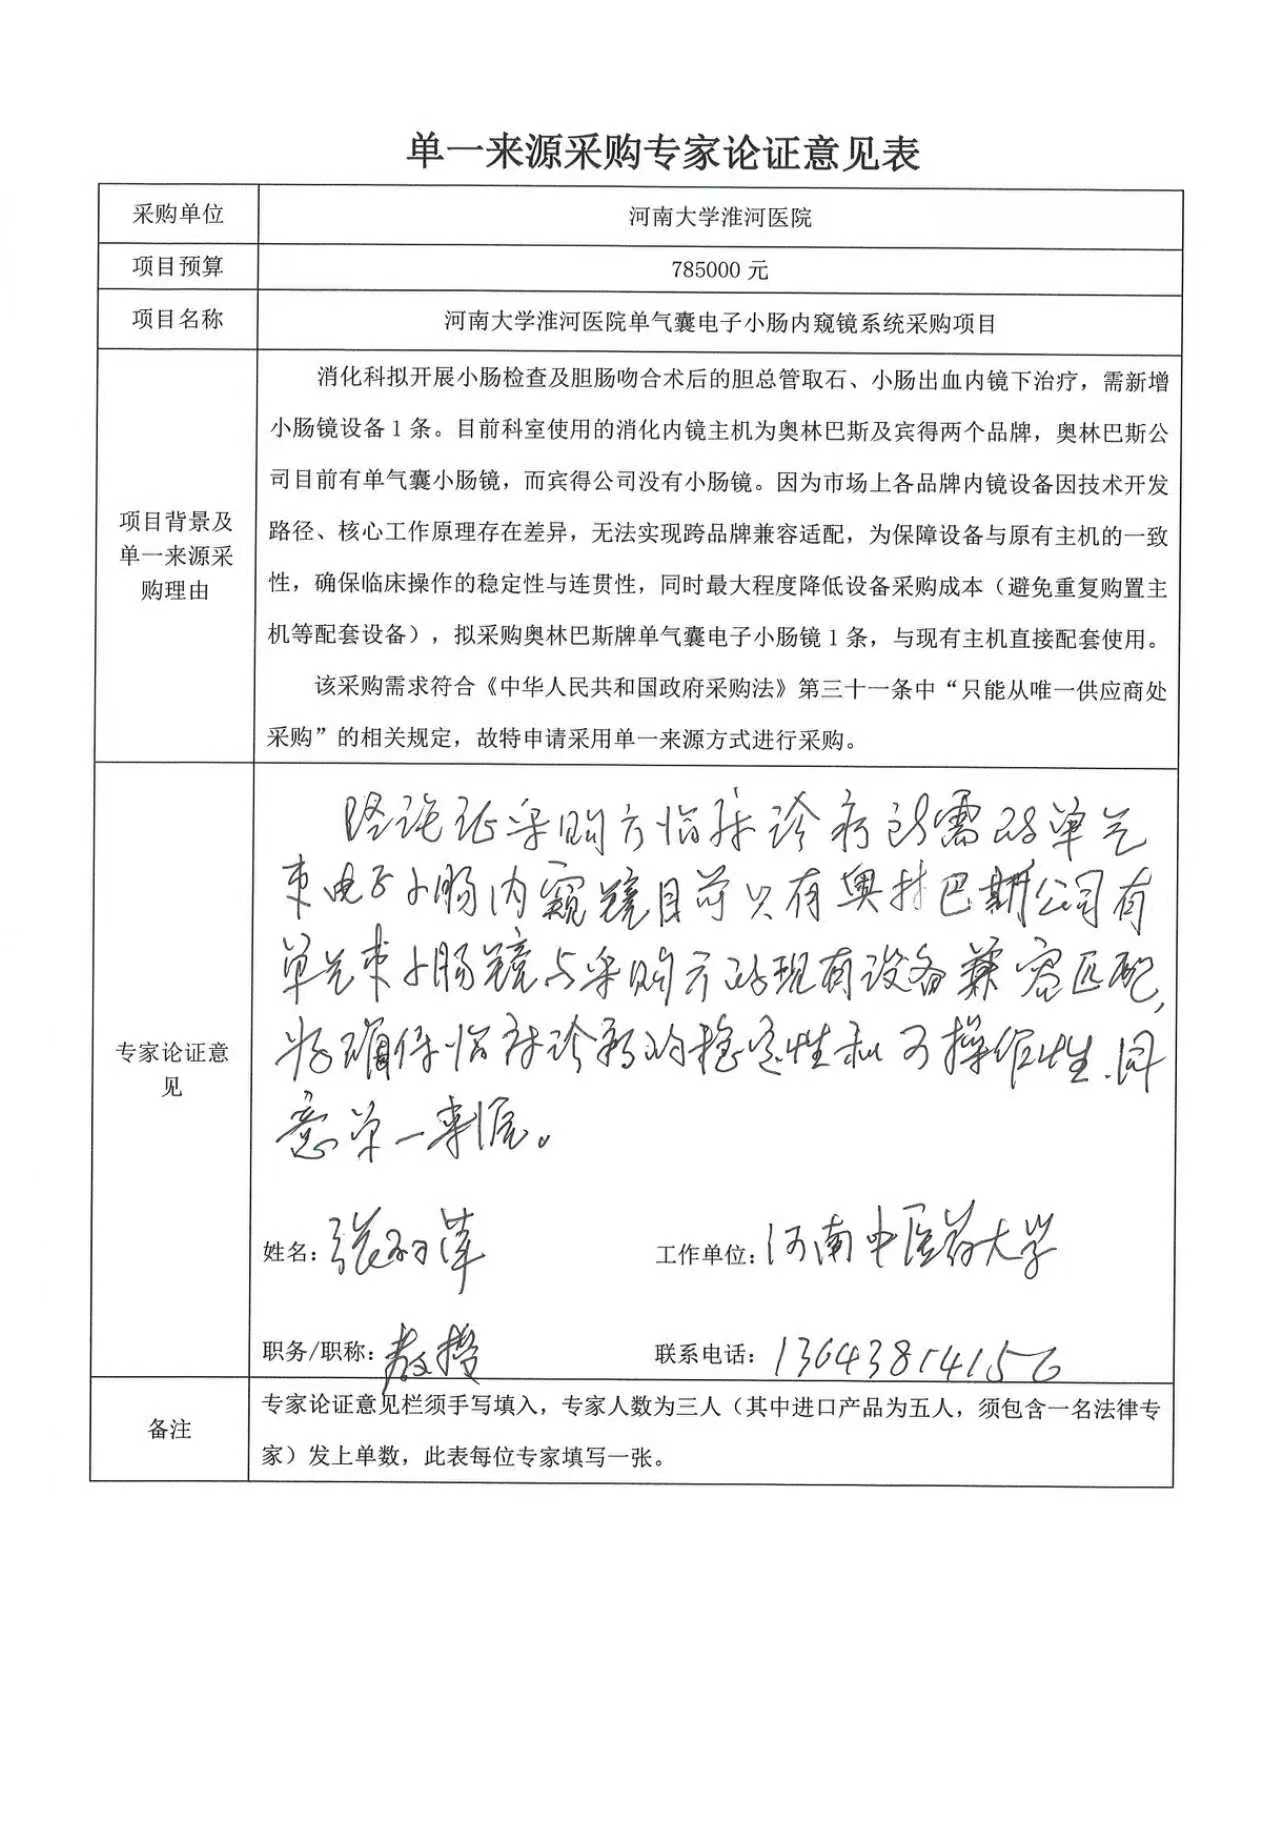 单一来源采购专家论证意见表
采购单位
河南大学淮河医院
项目预算
785000 元
项目名称
河南大学淮河医院单气囊电子小肠内窥镜系统采购项目
项目背景及
单一来源采
购理由
消化科拟开展小肠检查及胆肠吻合术后的胆总管取石、小肠出血内镜下治疗，需新增
小肠镜设备 1 条。目前科室使用的消化内镜主机为奥林巴斯及宾得两个品牌，奥林巴斯公
司目前有单气囊小肠镜，而宾得公司没有小肠镜。因为市场上各品牌内镜设备因技术开发
路径、核心工作原理存在差异，无法实现跨品牌兼容适配，为保障设备与原有主机的一致
性，确保临床操作的稳定性与连贯性，同时最大程度降低设备采购成本（避免重复购置主
机等配套设备），拟采购奥林巴斯牌单气囊电子小肠镜 1 条，与现有主机直接配套使用。
该采购需求符合《中华人民共和国政府采购法》第三十一条中“只能从唯一供应商处
采购”的相关规定，故特申请采用单一来源方式进行采购。
专家论证意
见
经论证采购方临床诊疗所需的单气
电子小肠内窥镜目前只有奥林巴斯公司有
单气小肠镜与采购方的现有设备兼容匹配，
确保临床诊疗的稳定性和可操作性.同
意单一来源。
姓名：张萍
工作单位：河南中医药大学
职务/职称：教授
联系电话：
备注
专家论证意见栏须手写填入，专家人数为三人（其中进口产品为五人，须包含一名法律专
家）发上单数，此表每位专家填写一张。